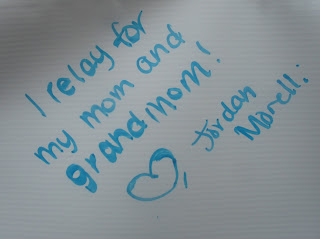 I relay for
my mom and
grandmom!
Jordan
Morell: